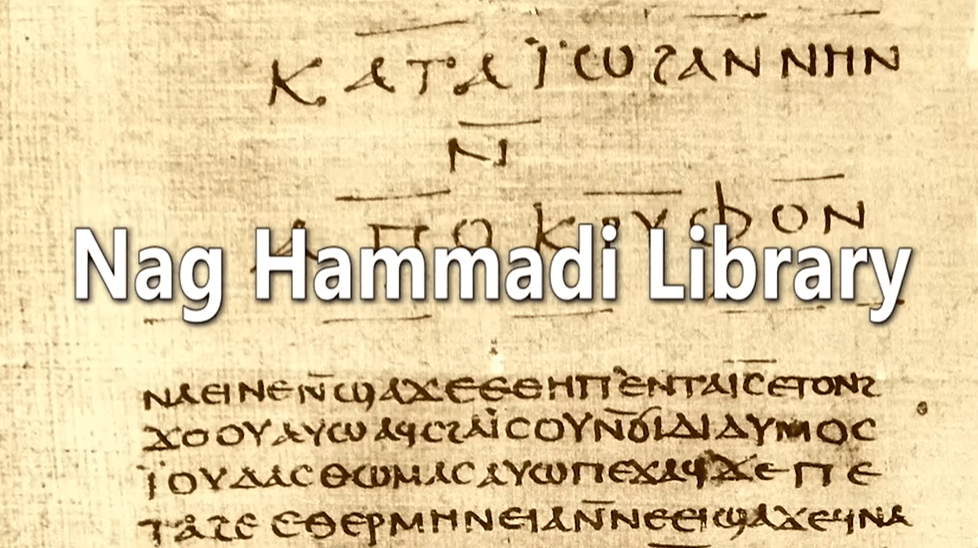 ⲕⲁⲧⲁⲓ̈ⲱϩⲁⲛⲛⲏⲛ
ⲛ̄
ⲁⲡⲟⲕⲣⲩⲫⲟⲛ
Nag Hammadi Library
ⲛⲁⲉⲓⲛⲉⲛ̄ϣⲁϫⲉⲉⲑⲏⲡ⳿ⲉⲛⲧⲁⲓ̅ⲥ̅ⲉⲧⲟⲛϩ
ϫⲟⲟⲩⲁⲩⲱⲁϥⲥϩⲁⲓ̈ⲥⲟⲩⲛ̄ϭⲓⲇⲓⲇⲩⲙⲟⲥ
ⲓ̈ⲟⲩⲇⲁⲥⲑⲱⲙⲁⲥⲁⲩⲱⲡⲉϫⲁϥϫⲉⲡⲉ
ⲧⲁϩⲉⲉⲑⲉⲣⲙⲏⲛⲉⲓⲁⲛ̄ⲛⲉⲉⲓϣⲁϫⲉϥⲛⲁ